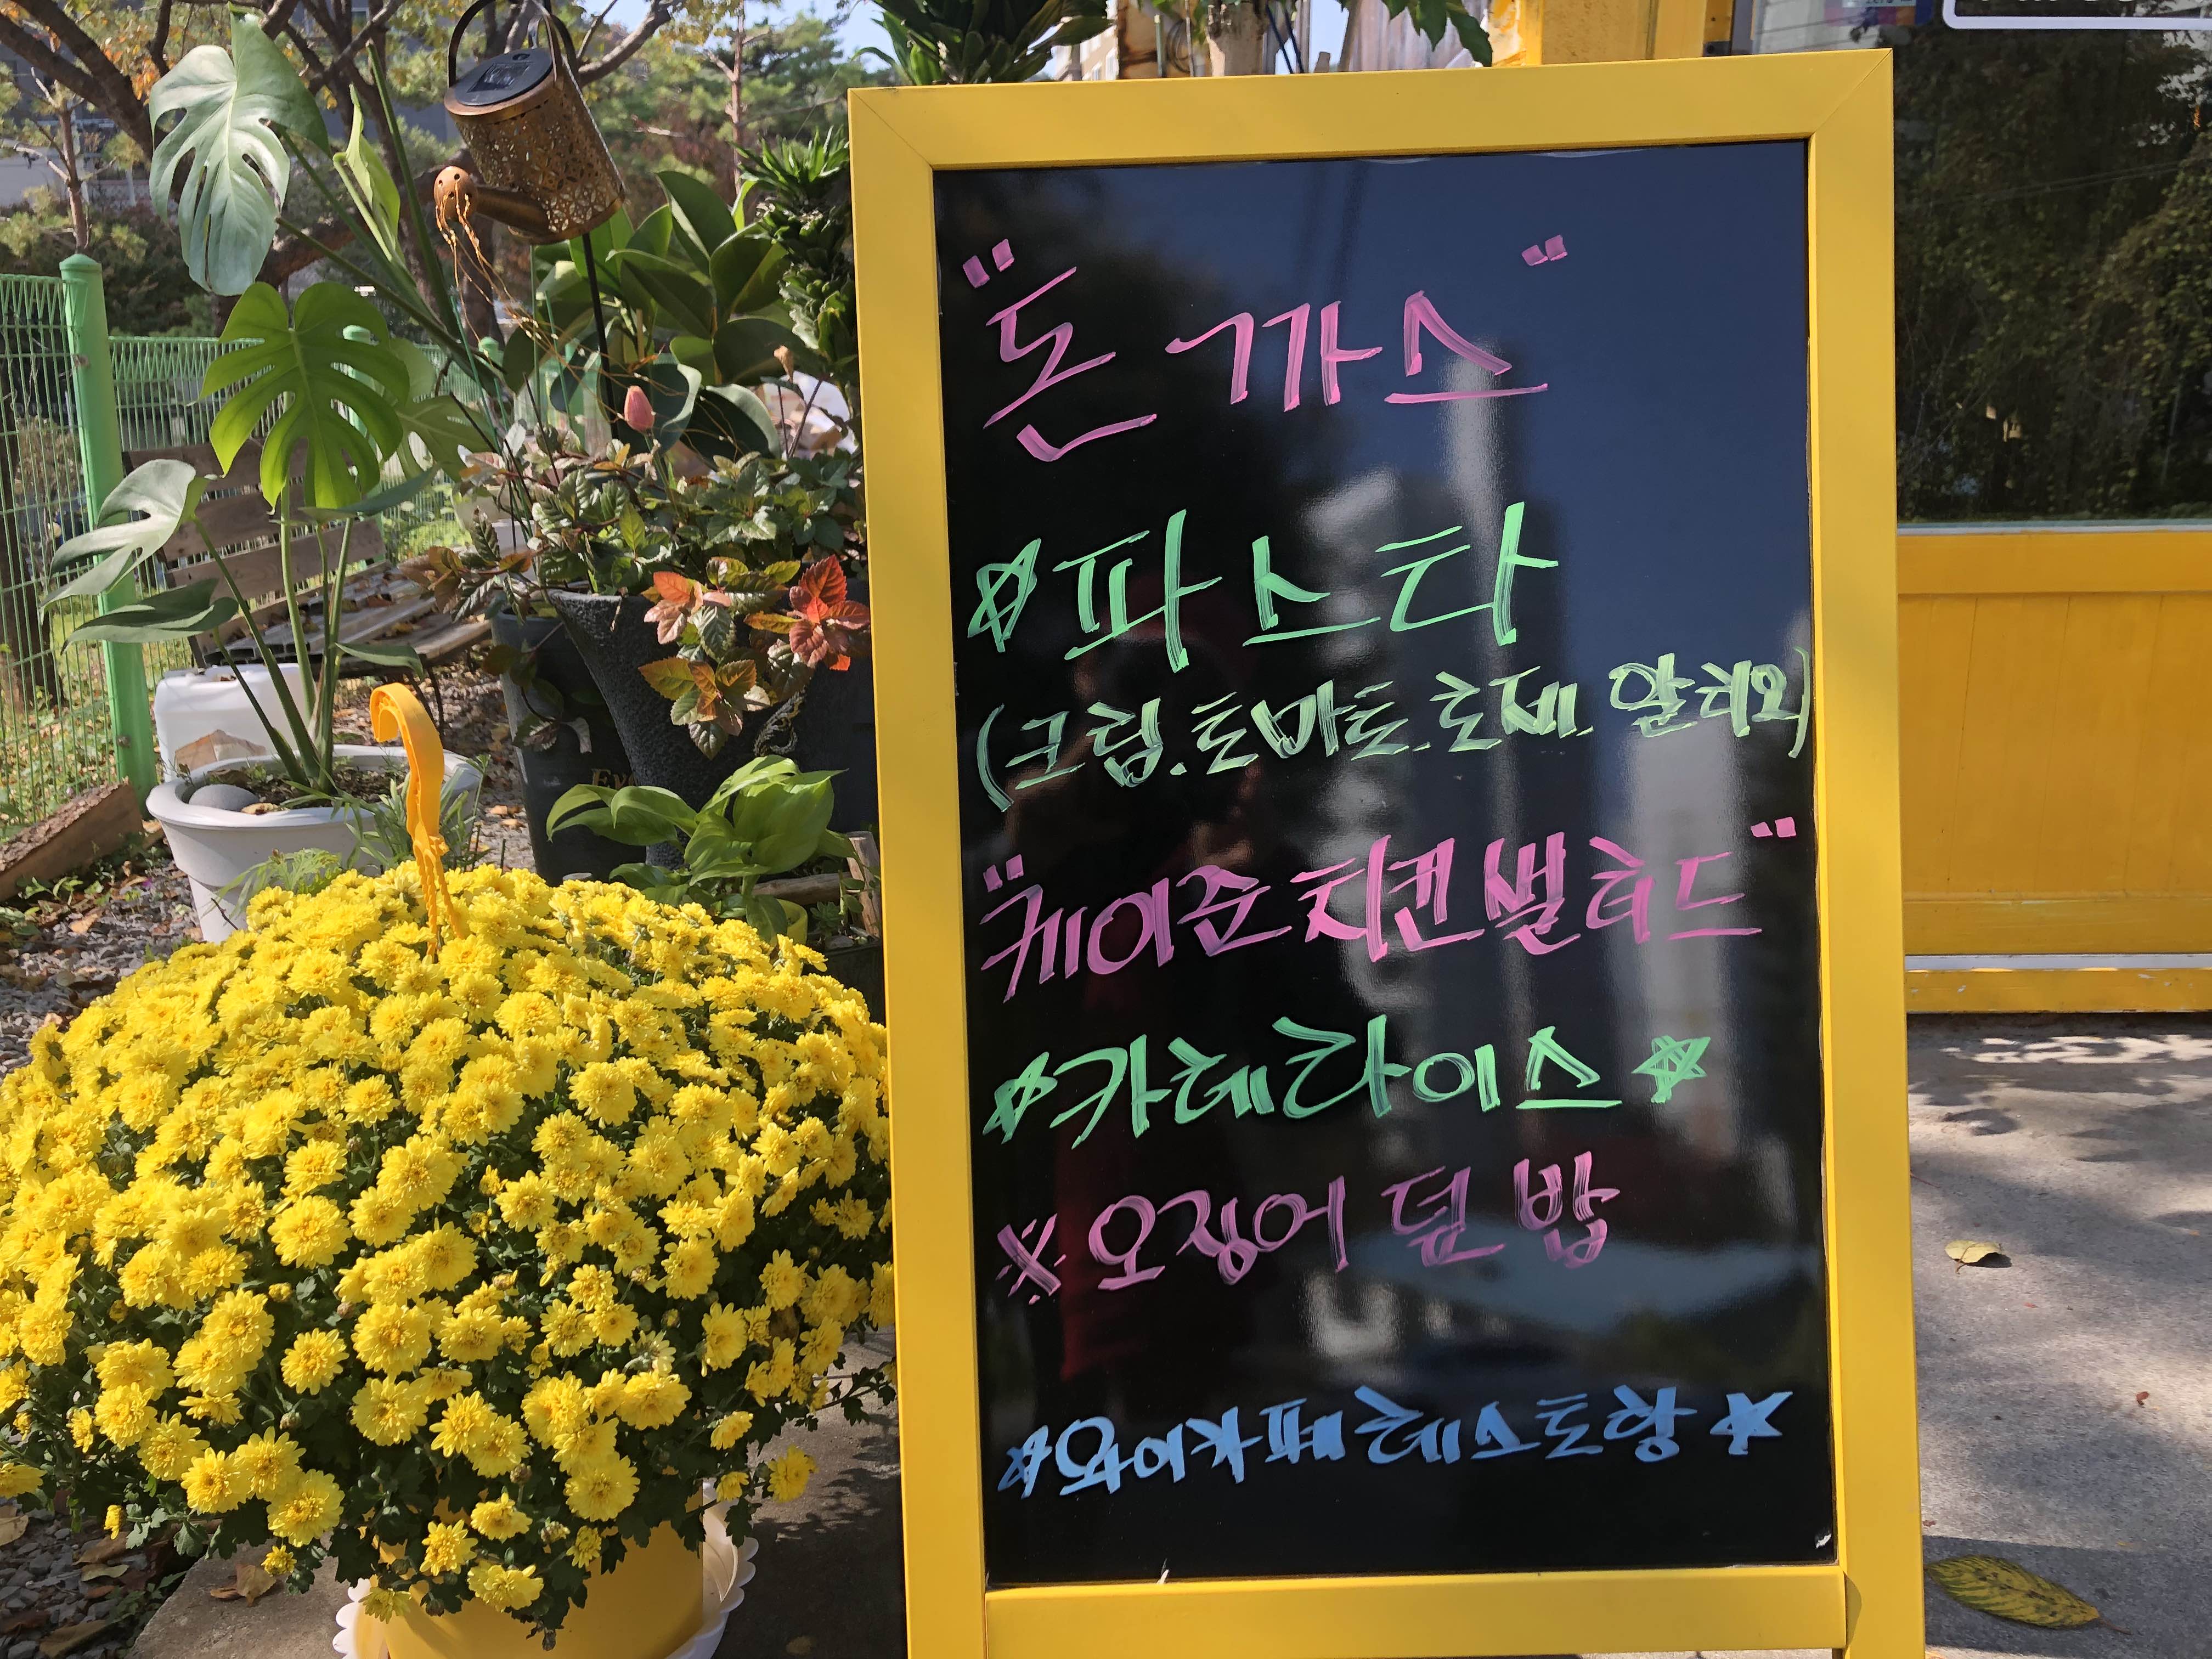 "돈까스"
☆파스타
(크림.토마토.로제.알리오)
"케이준치킨샐러드"
☆카레라이스☆
※오징어 덮밥